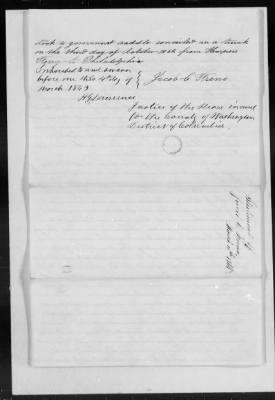 took a government saddle concealed in a trunk
on the third day of October 1862 from Harpers
Ferry to Philadelphia
Subscribed to and sworn
before me this 4th day of
March 1863
Jacob C.
Justice of the Peace in and
for the County of Washington
District of Columbia
Statement of
Jacob C.
March 4th 1863